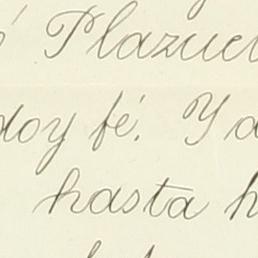 Plazuel
doy fé. Y a
hasta h